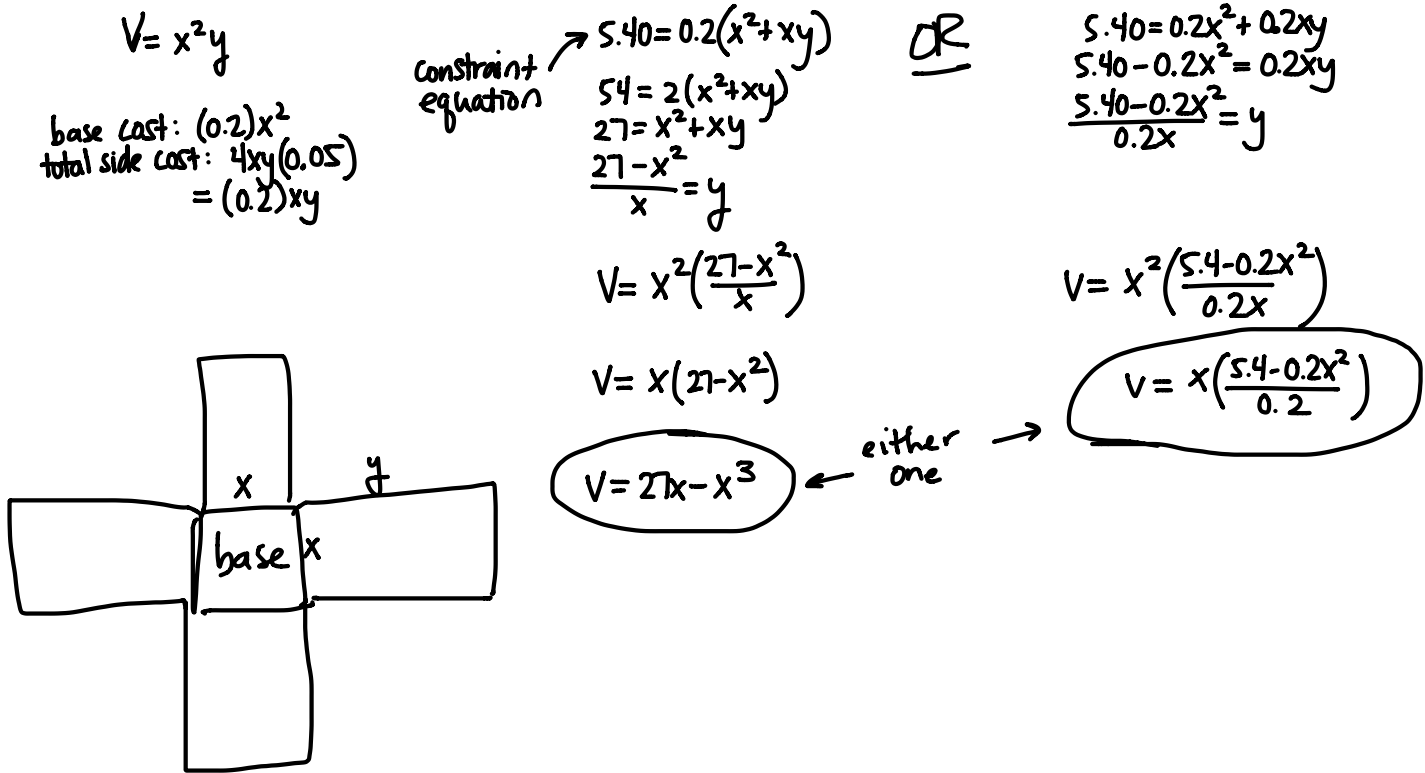 V = x²y
base cost: (0.2)x²
total side cost: 4xy(0.05)
= (0.2)xy
constraint
equation
5.40 = 0.2(x² + xy)
54 = 2(x² + xy)
27 = x² + xy
(27 - x²)/x = y
V = x²((27 - x²)/x)
V = x(27 - x²)
V = 27x - x³
OR
5.40 = 0.2x² + 0.2xy
5.40 - 0.2x² = 0.2xy
(5.40 - 0.2x²)/0.2x = y
V = x²((5.4 - 0.2x²)/0.2x)
V = x((5.4 - 0.2x²)/0.2)
either
one
x
y
base x